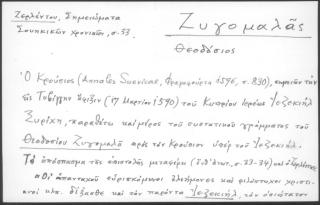 Ζερλέντου, Σημειώματα
Σουηκικῶν χρονικῶν, σ.33
Ζυγομαλᾶς
Θεοδόσιος
Ὁ Κρούσιος (Annales Suevicae, Φραγκφούρτη 1596, σ. 830), τὴν
εἰς Τυβίγγην ἄφιξιν (17 Μαρτίου 1590) τοῦ Κυπρίου ἱερέως Ἰεζεκιὴλ
Ξυρίχη, παραθέτει καὶ μέρος τοῦ συστατικοῦ γράμματος τοῦ
Θεοδοσίου Ζυγομαλᾶ πρὸς τὸν Κρούσιον ὑπὲρ τοῦ Ἰεζεκιήλ.
Τὸ ἀπόσπασμα τῆς ἐπιστολῆς μεταφέρει σ. 33-34) καὶ ὁ Ζερλέντης
«Οἱ ἁπανταχοῦ εὑρισκόμενοι ἐλεήμονες καὶ φιλόπτωχοι χριστι-
ανοὶ κλπ. δέξασθε καὶ τὸν παρόντα Ἰεζεκιήλ, τὸν